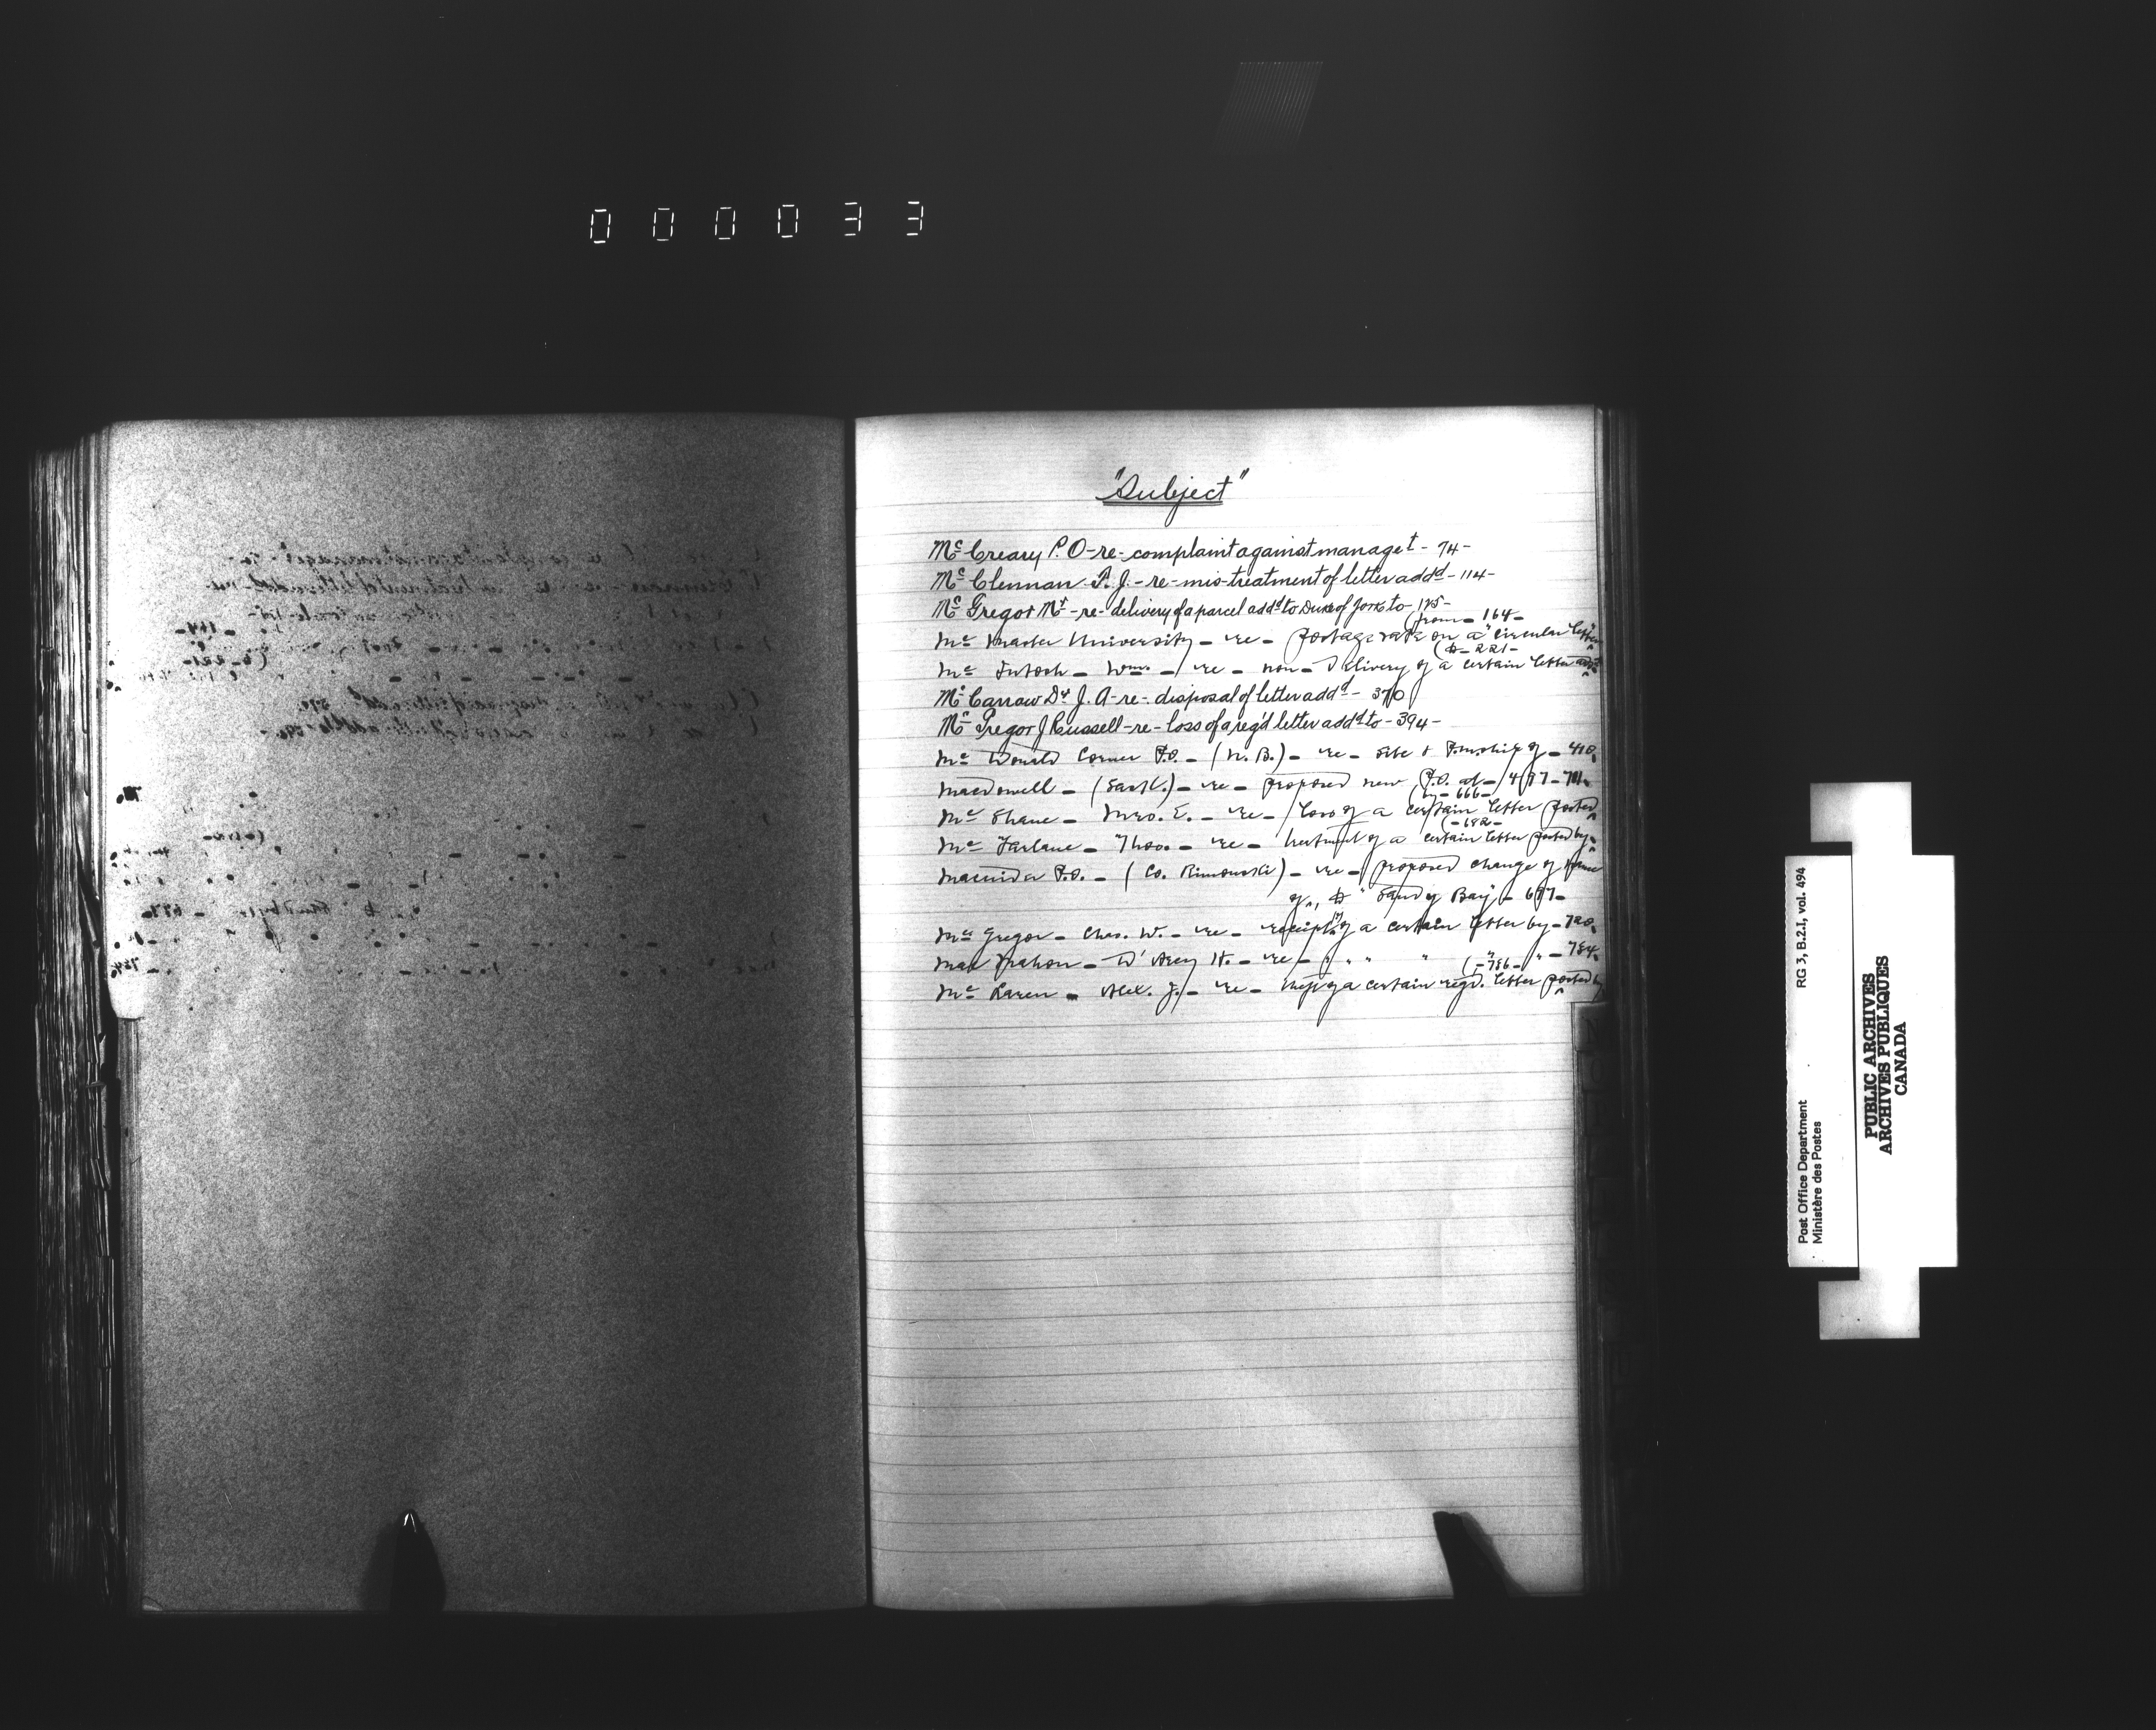 000033
"Subject"
Mc Creary P.O - re - complaint against managet - 74 -
Mc Clennan P. J. - re - mis-treatment of letter addd - 114 -
Mc Gregor Mr - re - delivery of a parcel addd to Duke of York to - 125 -
(from - 164 -
Mc Master University - re - postage rate on a "circular letter"
(to - 221 -
Mc Intosh - Wm. - re - non-delivery of a certain letter addd
Mc Carrow Dr J. A - re - disposal of letter addd - 370
Mc Gregor J Russell - re - loss of a reg'd letter addd to - 394 -
Mc Donald Corner P.O. - (N. B.) - re - site & P.mship of - 410.
Macdowell - (Sask.) - re - proposed new P.O. at - 477 - 711.
(by - 666 -
Mc Shane - Mrs. E. - re - loss of a certain letter posted
(- 682 -
Mc Farlane - Thos. - re - treatment of a certain letter posted by
Macnider P.O. - (Co. Rimouski) - re - proposed change of name
of, to "Sandy Bay" - 697 -
Mc Gregor - Chas. W. - re - receipt of a certain letter by - 720.
Mac Mahon - D'Arcy H. - re - " " " " " - 754.
(- 786 -
Mc Laren - Alex. J. - re - theft of a certain regd. letter posted by
RG 3, B.2.I, vol. 494
Post Office Department
Ministère des Postes
PUBLIC ARCHIVES
ARCHIVES PUBLIQUES
CANADA